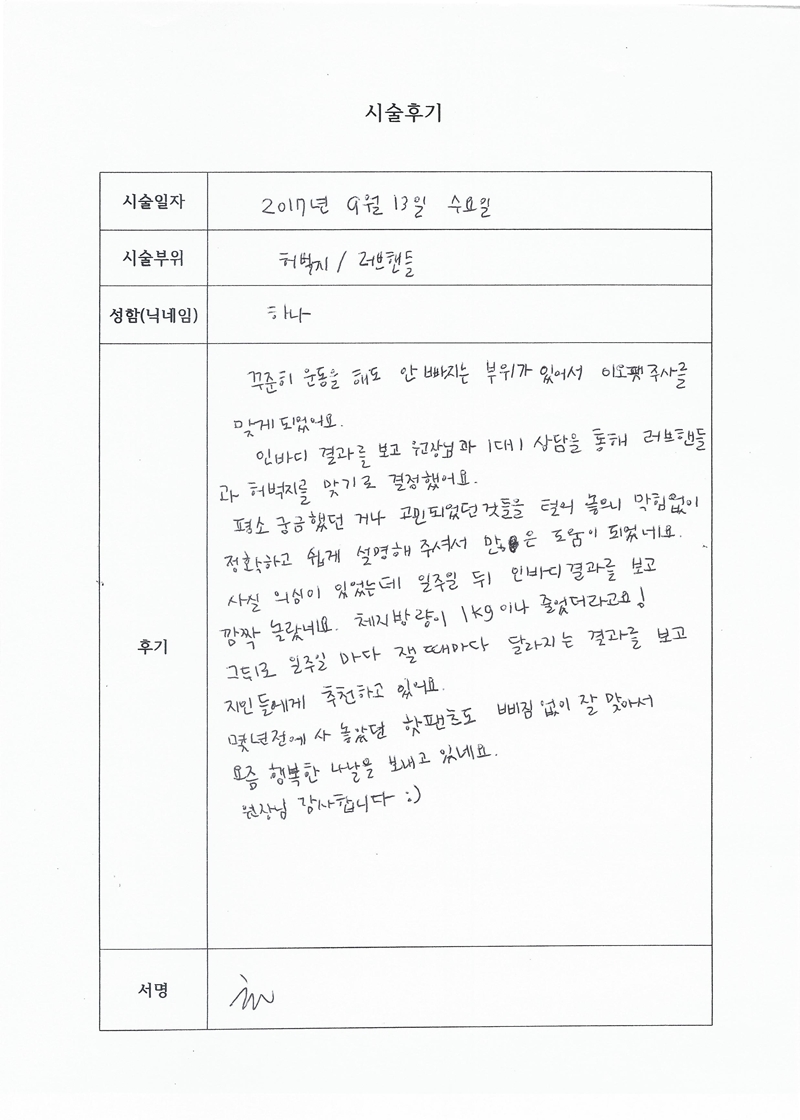 시술후기
시술일자 2017년 9월 13일 수요일
시술부위 허벅지 / 러브핸들
성함(닉네임) 하나
후기
꾸준히 운동을 해도 안 빠지는 부위가 있어서 이오팻주사를
맞게되었어요.
인바디 결과를 보고 원장님과 1대1 상담을 통해 러브핸들
과 허벅지를 맞기로 결정했어요.
평소 궁금했던 거나 고민되었던것들을 물으니 막힘없이
정확하고 쉽게 설명해 주셔서 많은 도움이 되었네요.
사실 의심이 있었는데 일주일 뒤 인바디결과를 보고
깜짝 놀랐네요. 체지방량이 1kg이나 줄었더라고요!
그뒤로 일주일 마다 잴 때마다 달라지는 결과를 보고
지인들에게 추천하고 있어요.
몇년전에 사 놓았던 핫팬츠도 삐짐 없이 잘 맞아서
요즘 행복한 나날을 보내고 있네요.
원장님 감사합니다 :)
서명